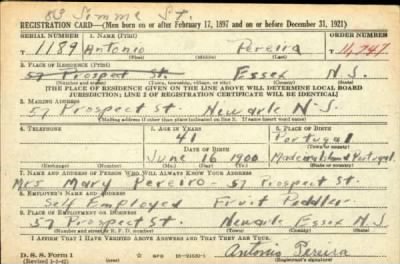 St.
REGISTRATION CARD—(Men born on or after February 17, 1897 and on or before December 31, 1921)
SERIAL NUMBER 1. NAME (Print) ORDER NUMBER
T 1189 Antonio Pereira T 11,747
2. PLACE OF RESIDENCE (Print)
57 Prospect St. Essex N.J.
(Number and street) (Town, township, village, or city) (County) (State)
[THE PLACE OF RESIDENCE GIVEN ON THE LINE ABOVE WILL DETERMINE LOCAL BOARD
JURISDICTION; LINE 2 OF REGISTRATION CERTIFICATE WILL BE IDENTICAL]
3. MAILING ADDRESS
57 Prospect St. Newark N.J.
[Mailing address if other than place indicated on line 2. If same insert word same]
4. TELEPHONE 5. AGE IN YEARS 6. PLACE OF BIRTH
41 Portugal
DATE OF BIRTH (Town or county)
June 16 1900 Portugal
(Exchange) (Number) (Mo.) (Day) (Yr.) (State or country)
7. NAME AND ADDRESS OF PERSON WHO WILL ALWAYS KNOW YOUR ADDRESS
Mrs Mary Pereiro - 57 Prospect St.
8. EMPLOYER'S NAME AND ADDRESS
Self Employed Fruit Peddler
9. PLACE OF EMPLOYMENT OR BUSINESS
57 Prospect St. Newark Essex N.J.
(Number and street or R. F. D. number) (Town) (County) (State)
I AFFIRM THAT I HAVE VERIFIED ABOVE ANSWERS AND THAT THEY ARE TRUE.
D. S. S. Form 1 GPO 16—21630-1 Antonio Pereira
(Revised 1-5-42) (over) (Registrant's signature)